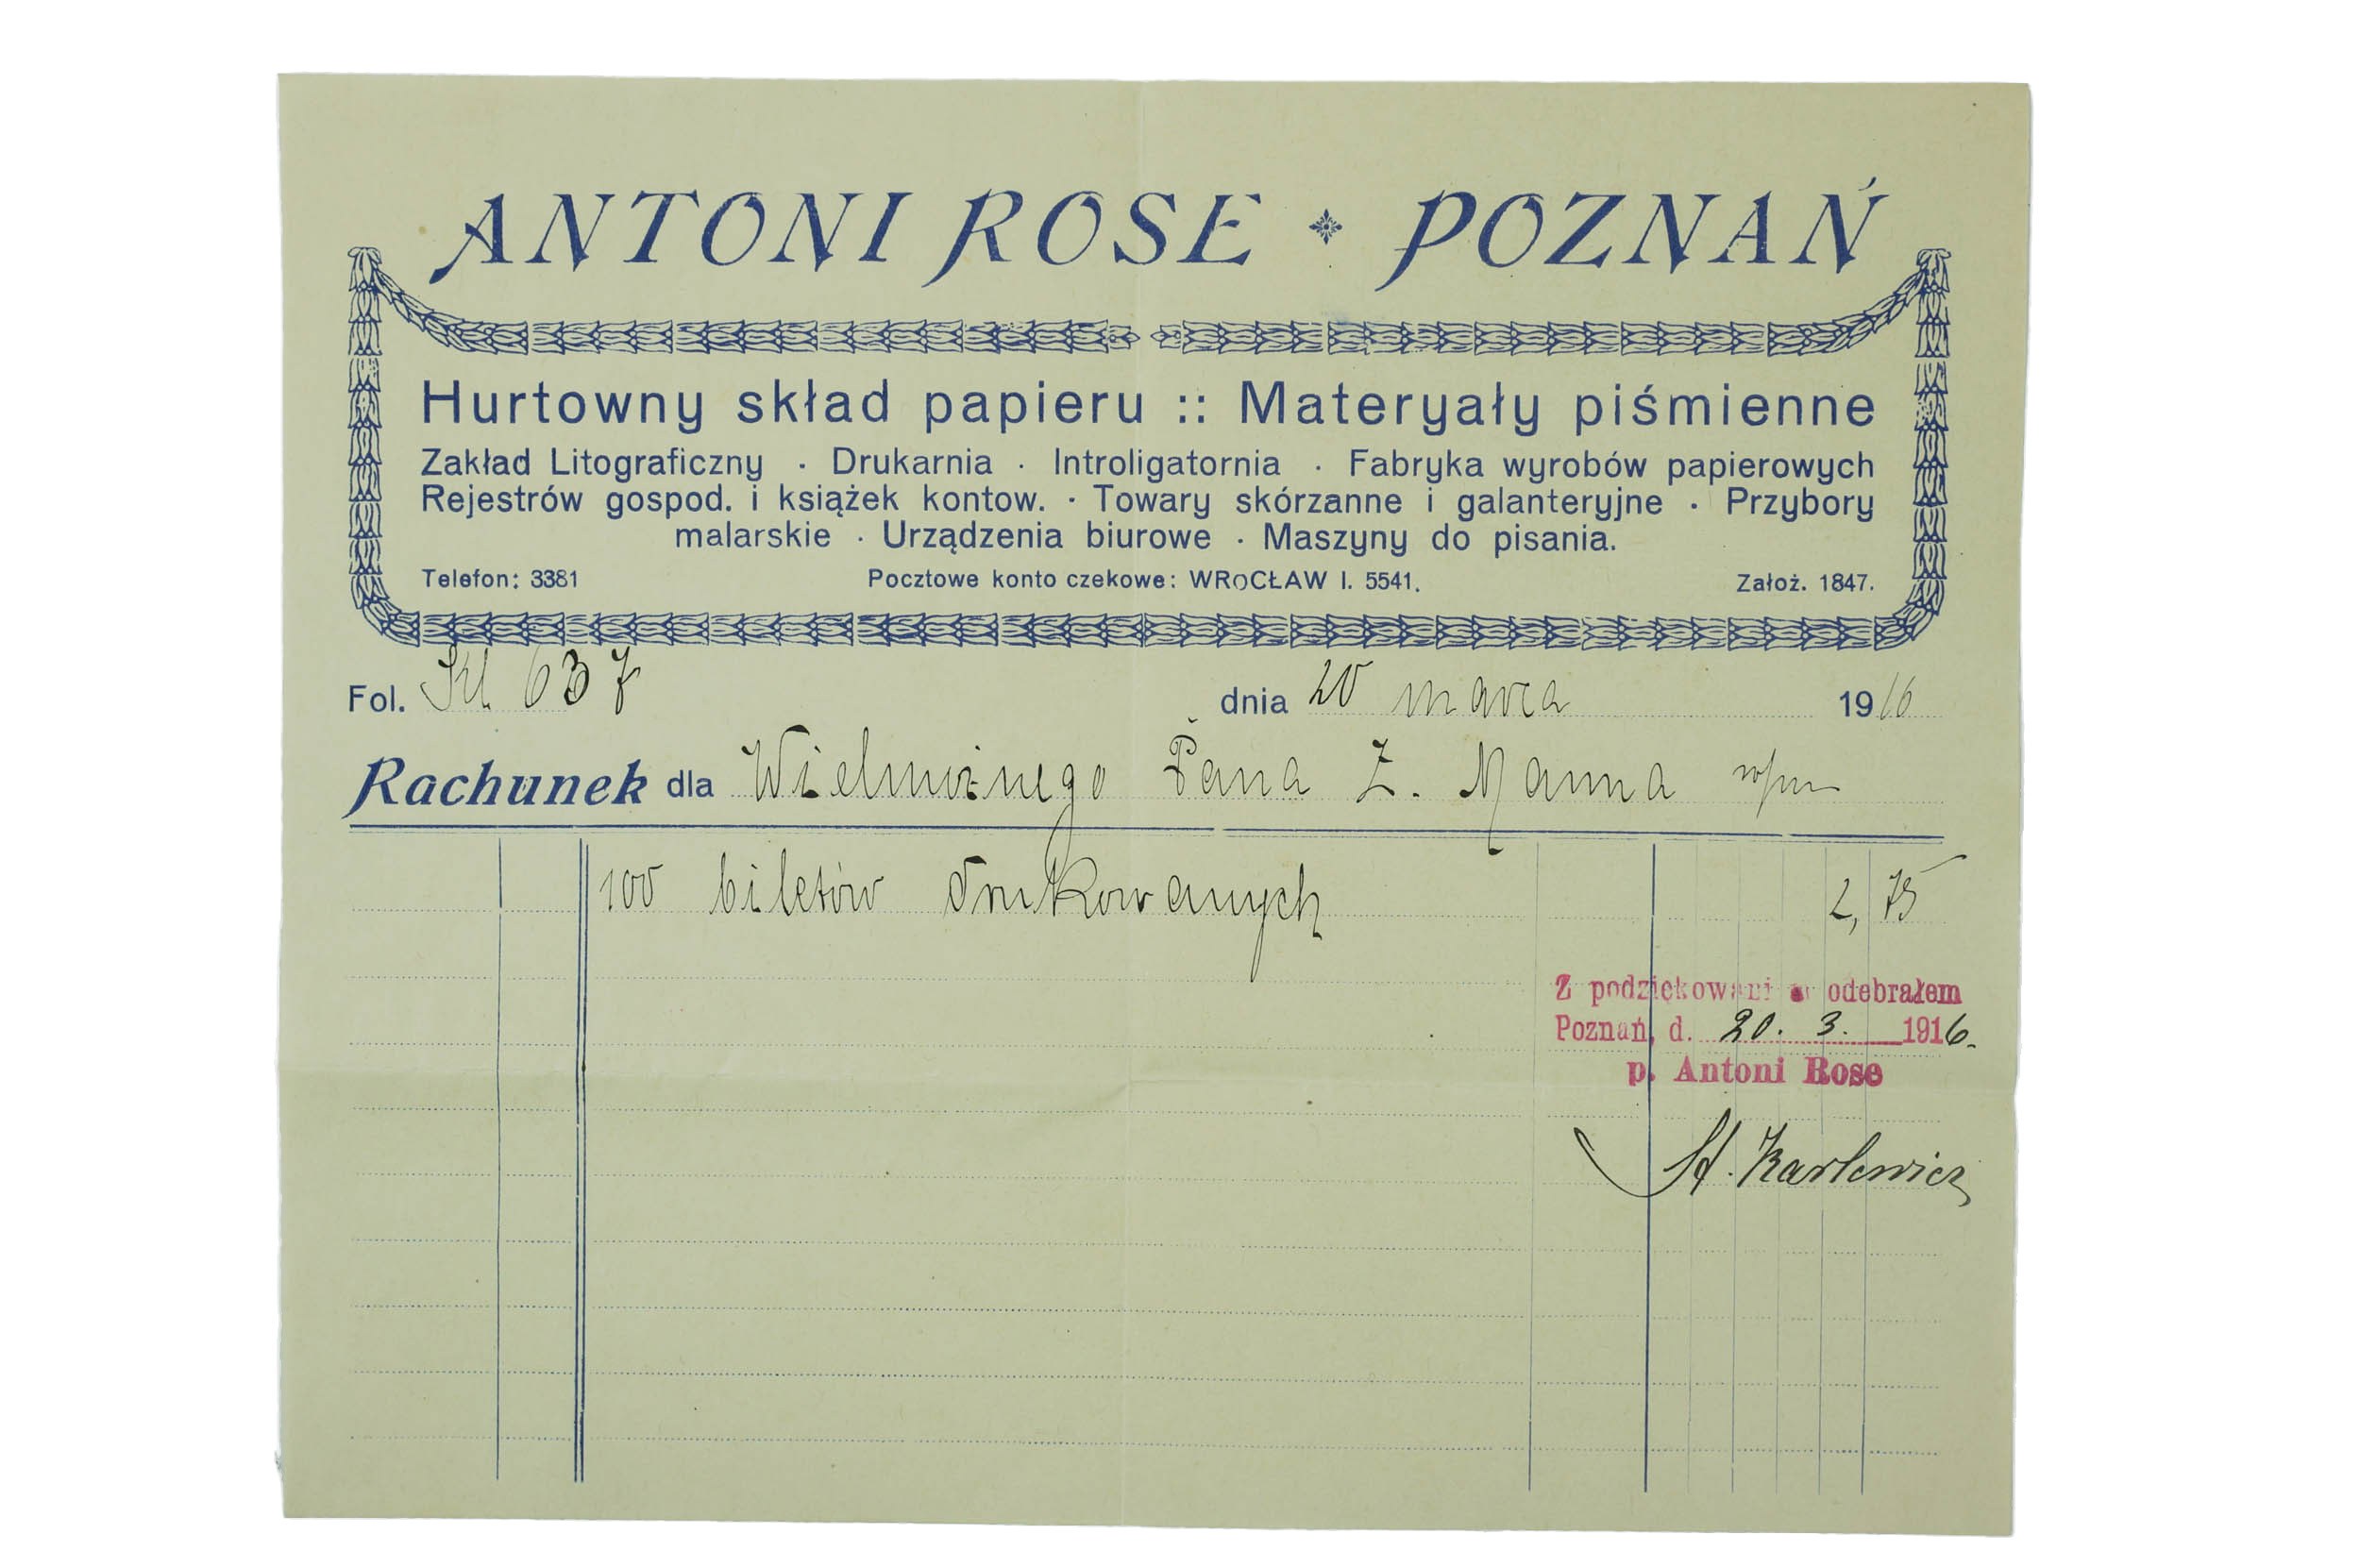 ANTONI ROSE POZNAŃ
Hurtowny skład papieru :: Materyały piśmienne
Zakład Litograficzny · Drukarnia · Introligatornia · Fabryka wyrobów papierowych
Rejestrów gospod. i książek kontow. · Towary skórzanne i galanteryjne · Przybory
malarskie · Urządzenia biurowe · Maszyny do pisania.
Telefon: 3381 Pocztowe konto czekowe: WROCŁAW I. 5541. Założ. 1847.
Fol. 637 dnia 20 marca 1916
Rachunek dla Wielmożnego Pana Z. Manna
100 biletów drukowanych 2,75
Z podziękowaniem odebrałem
Poznań, d. 20. 3. 1916.
p. Antoni Rose
St. Karlewicz